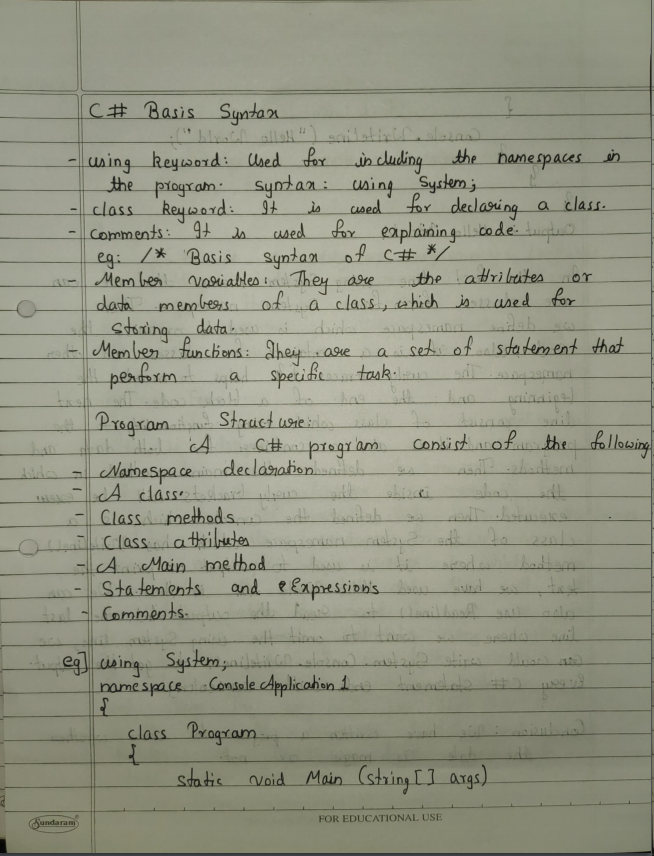 C# Basis Syntax
- using keyword: Used for including the namespaces in
the program. syntax: using System;
- class keyword: It is used for declaring a class.
- comments: It is used for explaining code.
eg: /* Basis syntax of C# */
- Member variables: They are the attributes or
data members of a class, which is used for
storing data.
- Member functions: They are a set of statement that
perform a specific task.
Program Structure:
A C# program consist of the following
- Namespace declaration
- A class.
- Class methods
- Class attributes
- A Main method
- Statements and Expressions
- Comments.
eg] using System;
namespace Console Application 1
{
class Program
{
static void Main (string [] args)
Sundaram
FOR EDUCATIONAL USE